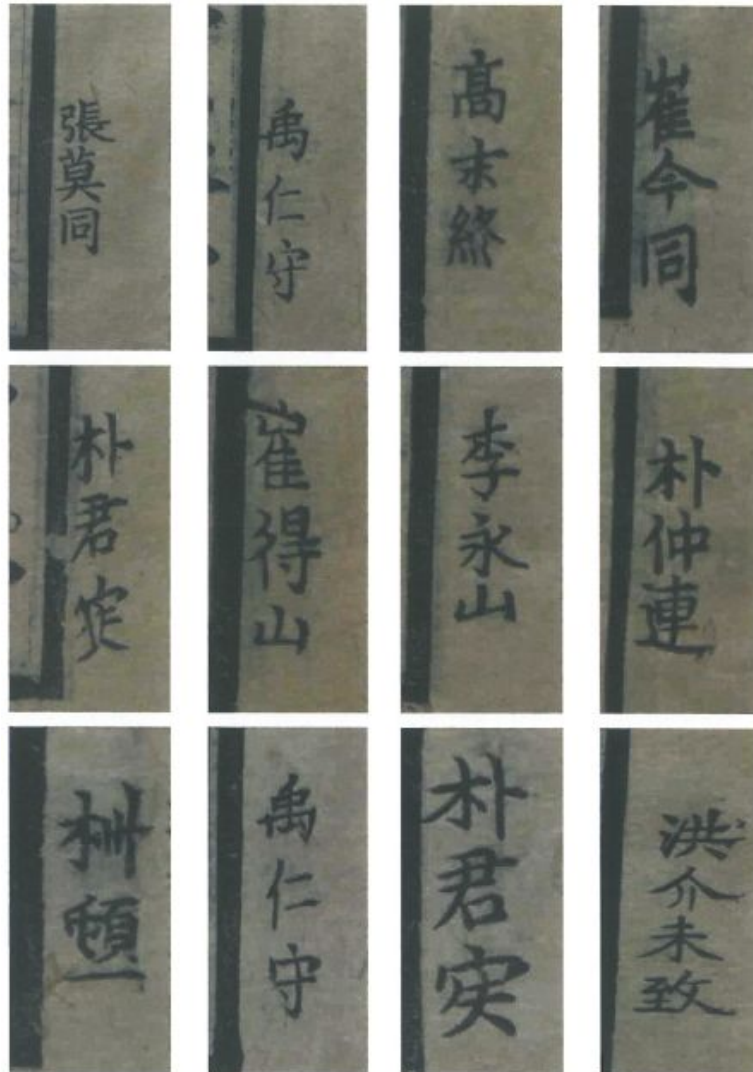 張莫同
禹仁守
高末終
崔今同
朴君
崔得山
李永山
朴仲連
禹仁守
朴君実
洪介未致